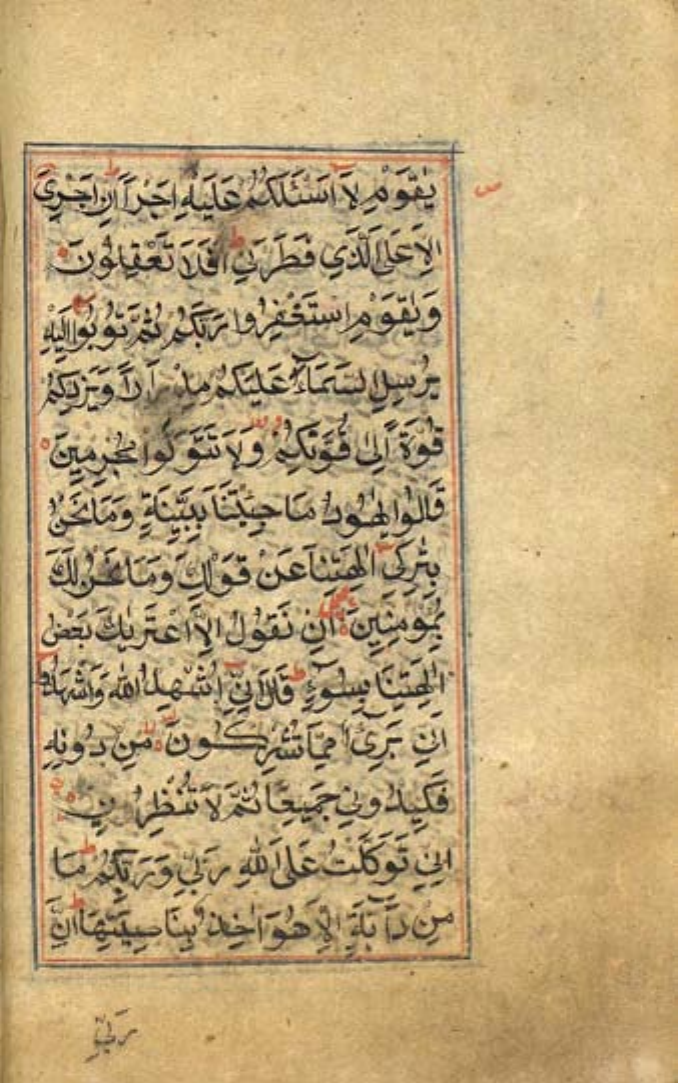 يٰقَوْمِ لَا اَسْـَٔلُكُمْ عَلَيْهِ اَجْرًا اِنْ اَجْرِيَ
اِلَّا عَلَى الَّذِي فَطَرَنِي اَفَلَا تَعْقِلُونَ
وَيٰقَوْمِ اسْتَغْفِرُوا رَبَّكُمْ ثُمَّ تُوبُوا اِلَيْهِ
يُرْسِلِ السَّمَآءَ عَلَيْكُمْ مِدْرَارًا وَيَزِدْكُمْ
قُوَّةً اِلٰى قُوَّتِكُمْ وَلَا تَتَوَلَّوا مُجْرِمِينَ
قَالُوا يٰهُودُ مَا جِئْتَنَا بِبَيِّنَةٍ وَمَا نَحْنُ
بِتَارِكِي اٰلِهَتِنَا عَنْ قَوْلِكَ وَمَا نَحْنُ لَكَ
بِمُؤْمِنِينَ اِنْ نَقُولُ اِلَّا اعْتَرٰىكَ بَعْضُ
اٰلِهَتِنَا بِسُوٓءٍ قَالَ اِنِّي اُشْهِدُ اللهَ وَاشْهَدُوا
اَنِّي بَرِيٓءٌ مِمَّا تُشْرِكُونَ مِنْ دُونِهِ
فَكِيدُونِي جَمِيعًا ثُمَّ لَا تُنْظِرُونِ
اِنِّي تَوَكَّلْتُ عَلَى اللهِ رَبِّي وَرَبِّكُمْ مَا
مِنْ دَآبَّةٍ اِلَّا هُوَ اٰخِذٌ بِنَاصِيَتِهَا اِنَّ
رَبِّي